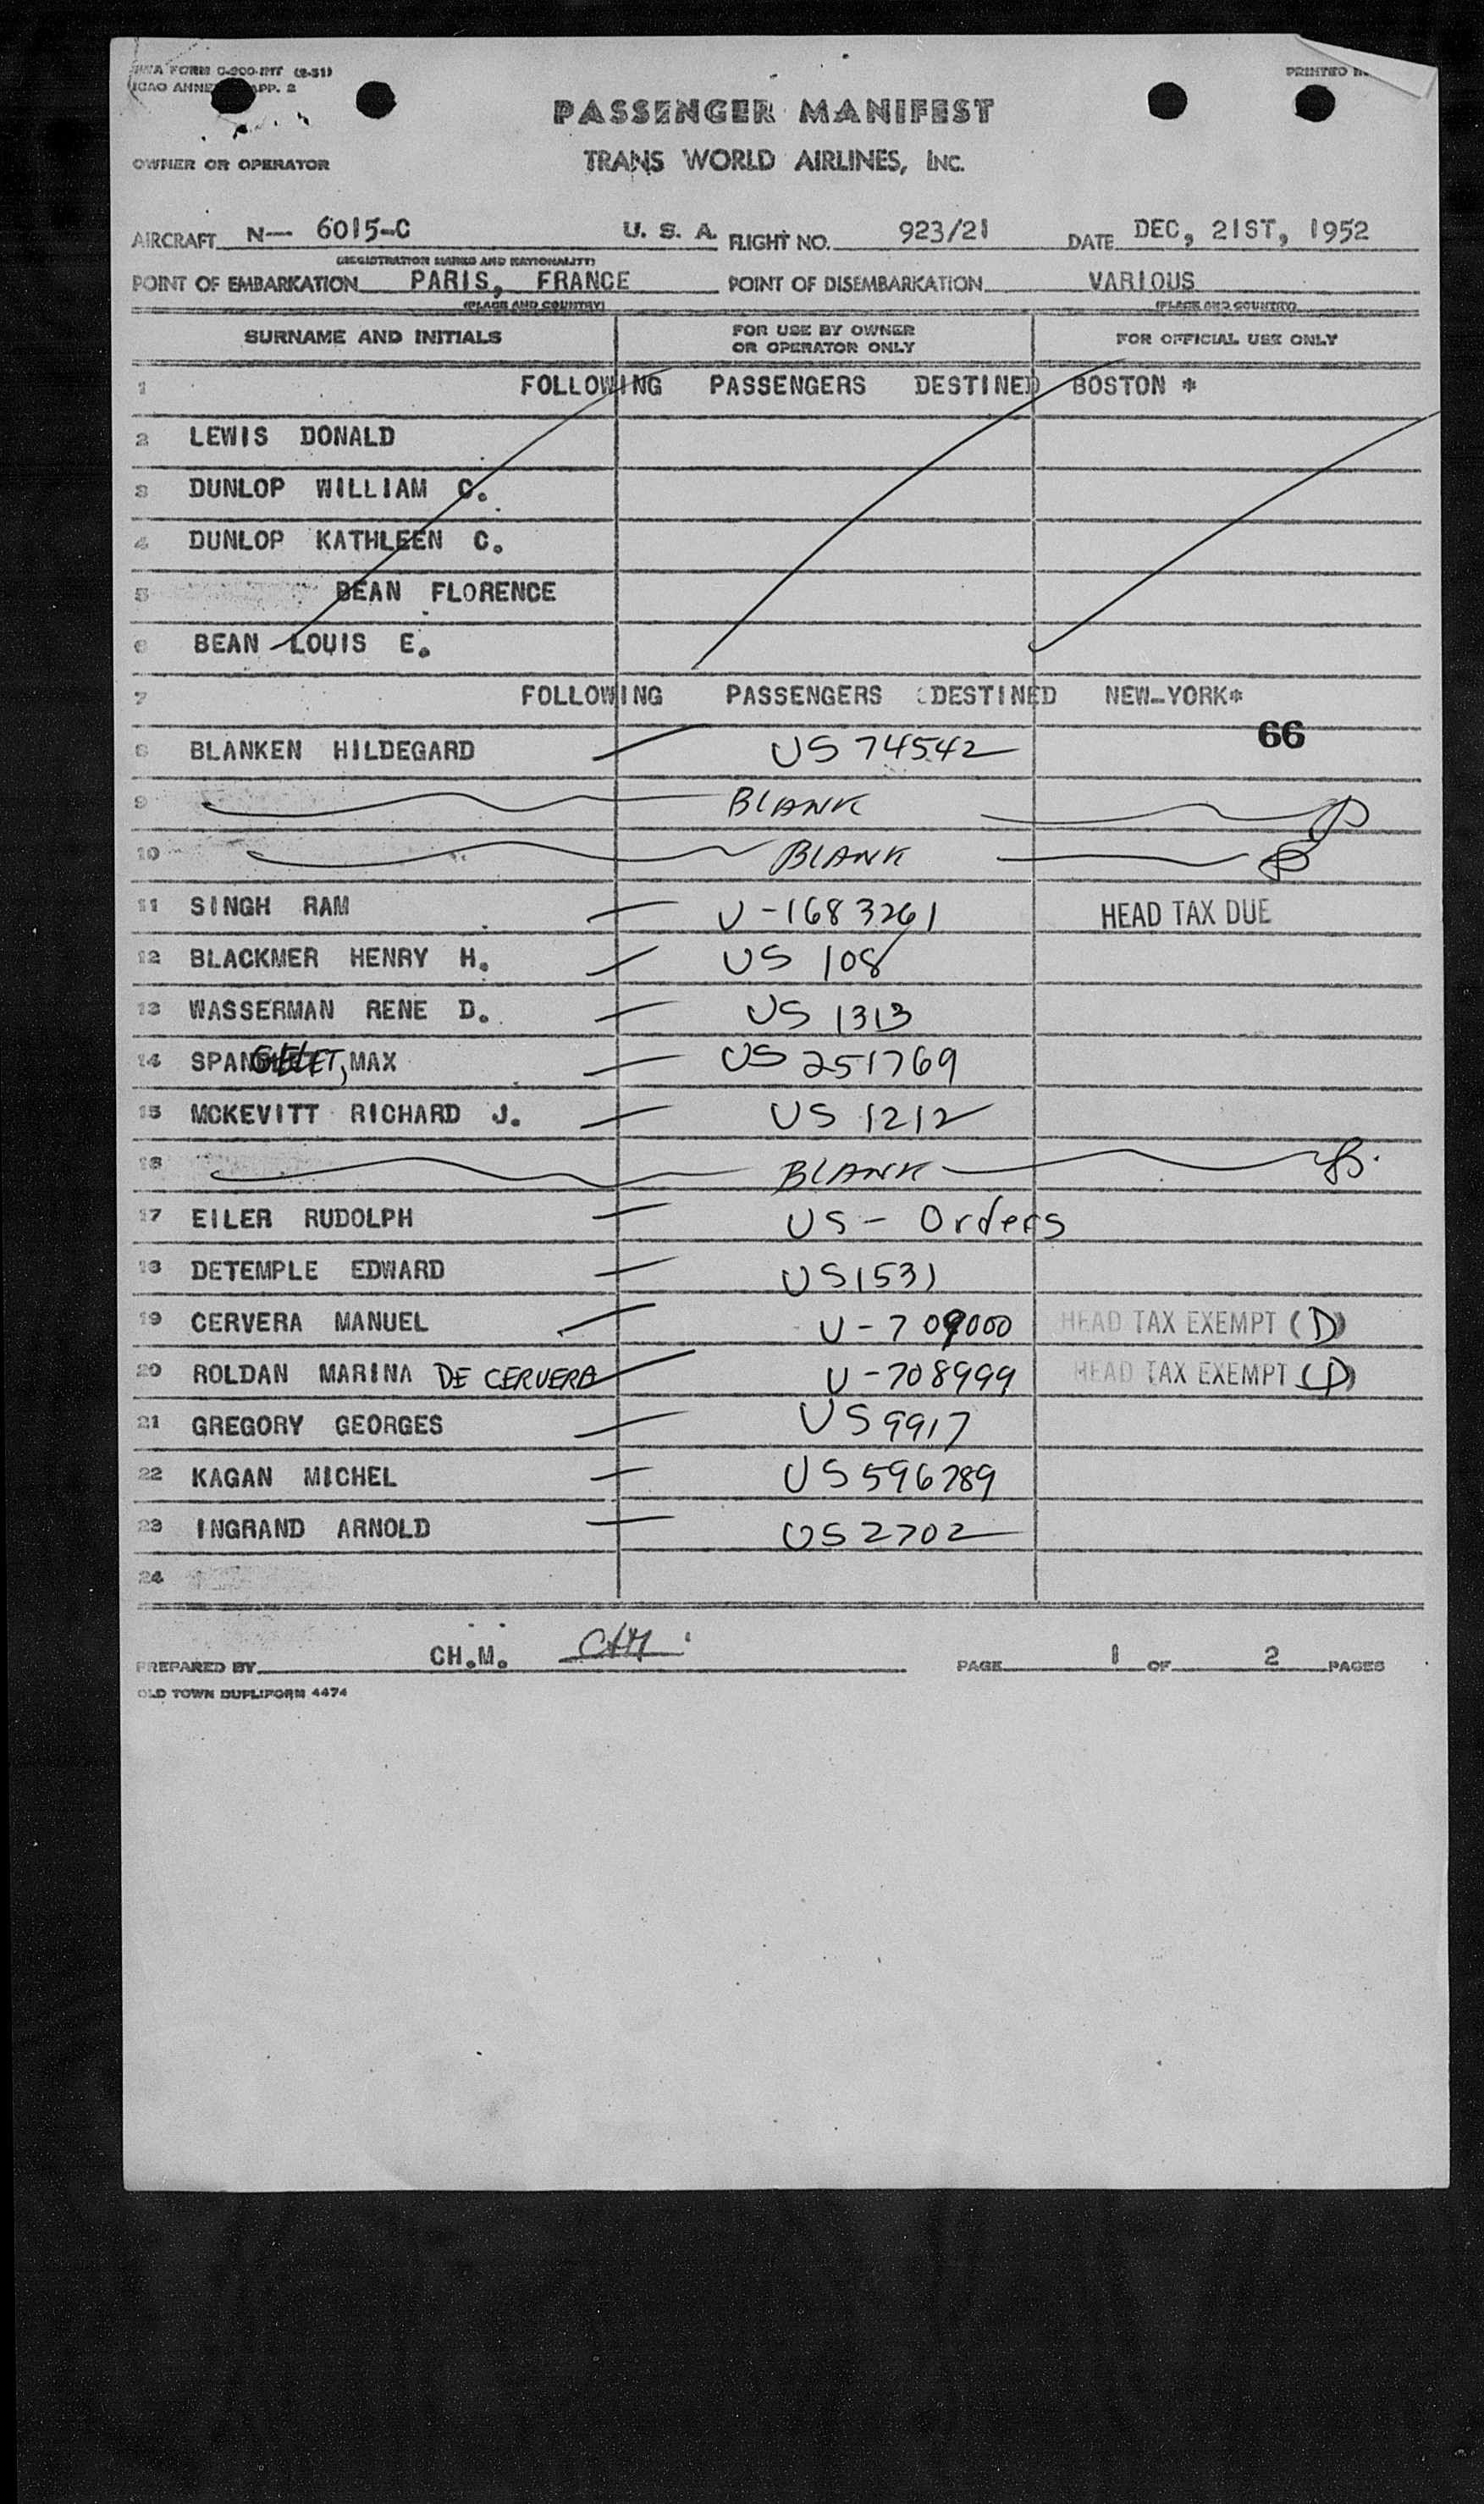 TWA FORM O-900-INT (8-51)
ICAO ANNEX APP. 2
PRINTED IN
PASSENGER MANIFEST
OWNER OR OPERATOR
TRANS WORLD AIRLINES, INC.
AIRCRAFT N— 6015-C U. S. A. FLIGHT NO. 923/21 DATE DEC, 21ST, 1952
(REGISTRATION MARKS AND NATIONALITY)
POINT OF EMBARKATION PARIS, FRANCE POINT OF DISEMBARKATION VARIOUS
(PLACE AND COUNTRY) (PLACE AND COUNTRY)
SURNAME AND INITIALS FOR USE BY OWNER OR OPERATOR ONLY FOR OFFICIAL USE ONLY
1 FOLLOWING PASSENGERS DESTINED BOSTON *
2 LEWIS DONALD
3 DUNLOP WILLIAM C.
4 DUNLOP KATHLEEN C.
5 BEAN FLORENCE
6 BEAN LOUIS E.
7 FOLLOWING PASSENGERS DESTINED NEW-YORK*
66
8 BLANKEN HILDEGARD — US 74542
9 BLANK
10 BLANK
11 SINGH RAM — U-1683261 HEAD TAX DUE
12 BLACKMER HENRY H. — US 108
13 WASSERMAN RENE D. — US 1313
14 SPANGELET, MAX — US 251769
15 MCKEVITT RICHARD J. — US 1212
16 BLANK
17 EILER RUDOLPH — US - Orders
18 DETEMPLE EDWARD — US1531
19 CERVERA MANUEL — U-709000 HEAD TAX EXEMPT (D)
20 ROLDAN MARINA DE CERVERA — U-708999 HEAD TAX EXEMPT (D)
21 GREGORY GEORGES — US 9917
22 KAGAN MICHEL — US 596789
23 INGRAND ARNOLD — US 2702
24
PREPARED BY CH.M. CHM PAGE 1 OF 2 PAGES
OLD TOWN DUPLIFORM 4474